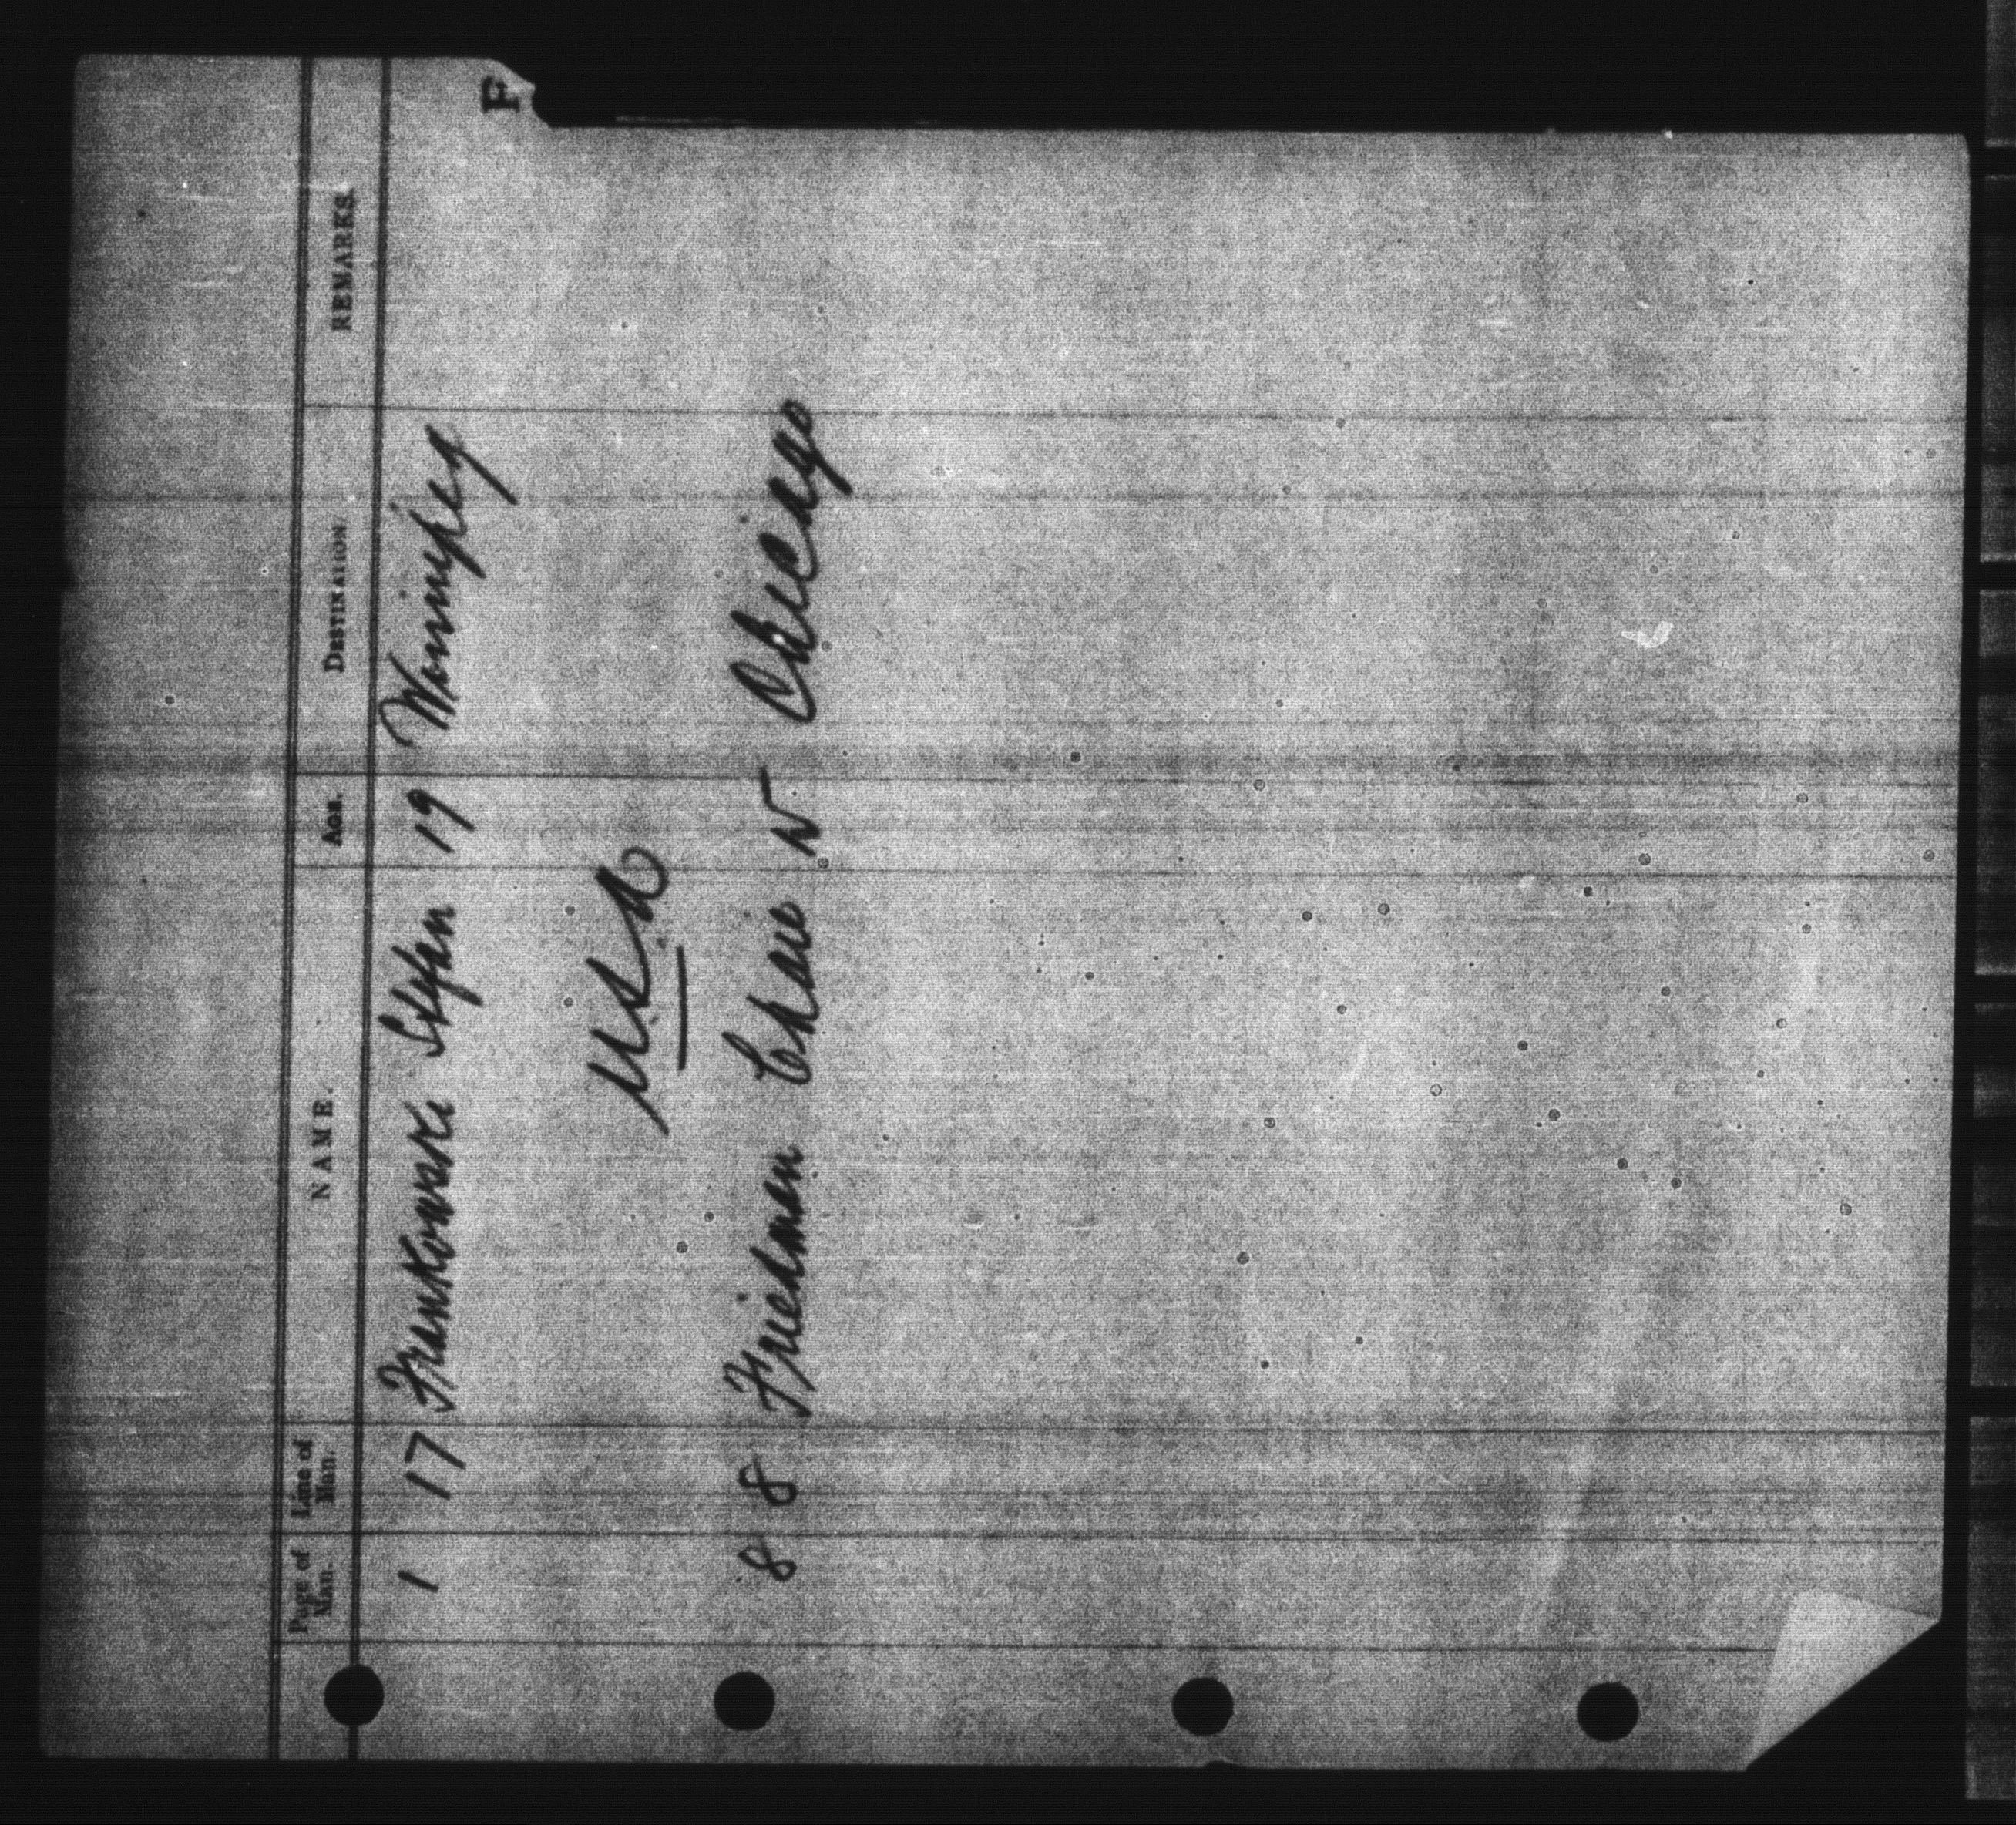 F
Page of Man. Line of Man. NAME. AGE. DESTINATION. REMARKS.
1 17 Frankowski Stefan 19 Winnipeg
USA
8 8 Friedman Chaie Chicago